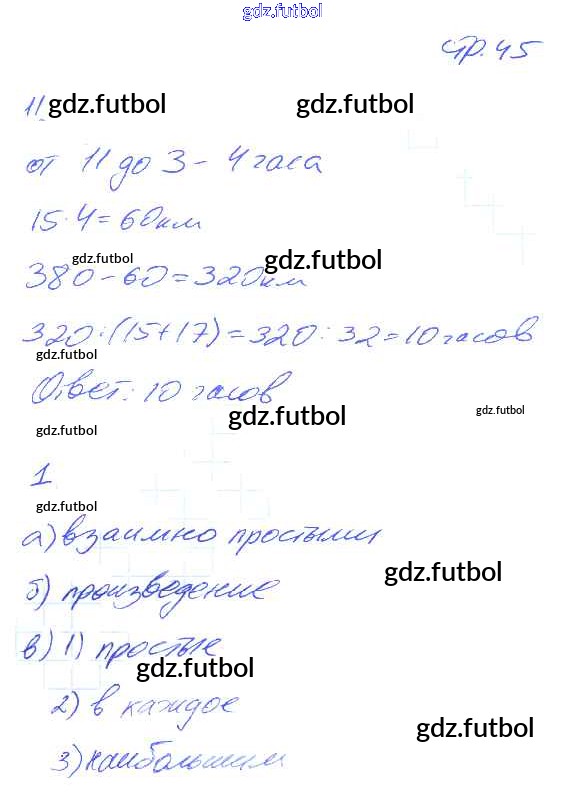 gdz.futbol
стр. 45
11 gdz.futbol gdz.futbol
от 11 до 3 - 4 часа
15·4=60км
gdz.futbol gdz.futbol
380-60=320км
320:(15+17)=320:32=10 часов
gdz.futbol
Ответ: 10 часов
gdz.futbol gdz.futbol
gdz.futbol
1
gdz.futbol
а) взаимно простыми
gdz.futbol
б) произведение
в) 1) простые
gdz.futbol
2) в каждое
gdz.futbol
3) наибольшим